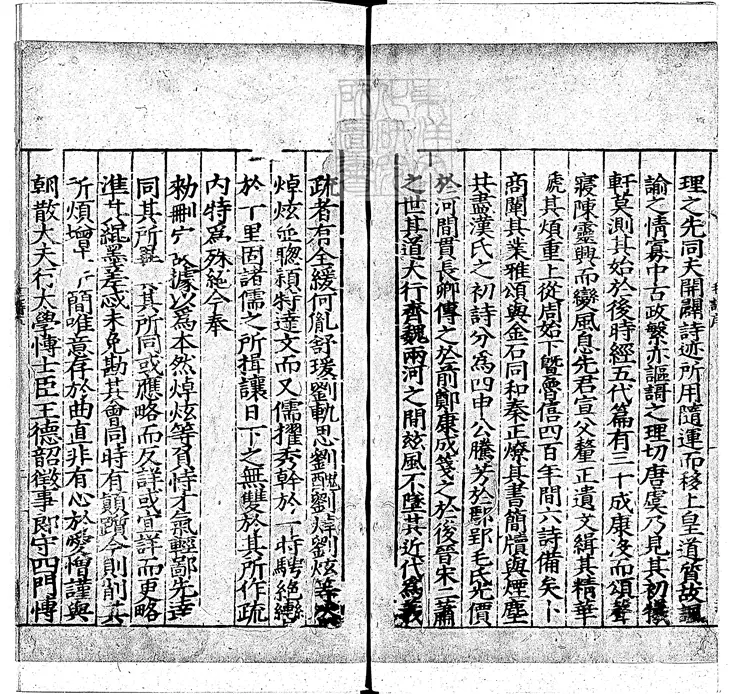 理之先同夫開闢詩迹所用隨運而移上皇道質故諷
諭之情寡中古政繁亦謳謌之理切唐虞乃見其初犧
軒莫測其始於後時經五代篇有三千成康沒而頌聲
寢陳靈興而變風息先君宣父釐正遺文緝其精華
褫其煩重上從周始下曁魯僖四百年間六詩備矣卜
商闡其業雅頌與金石同和秦正燎其書簡牘與煙塵
共盡漢氏之初詩分爲四申公騰芳於鄢郢毛氏光價
於河間貫長卿傳之於前鄭康成箋之於後晉宋二蕭
之世其道大行齊魏兩河之間茲風不墜其近代爲義
疏者有全緩何胤舒瑗劉軌思劉醜劉焯劉炫等然
焯炫並聰穎特達文而又儒擢秀幹於一時騁絕轡
於千里固諸儒之所揖讓日下之無雙於其所作疏
內特爲殊絕今奉
勑刪定故據以爲本然焯炫等負恃才氣輕鄙先達
同其所異其所同或應略而反詳或宜詳而更略
準其繩墨差忒未免勘其會同時有顛躓今則削其
所煩增其所簡唯意存於曲直非有心於愛憎謹與
朝散大夫行大學博士臣王德韶徵事郎守四門博